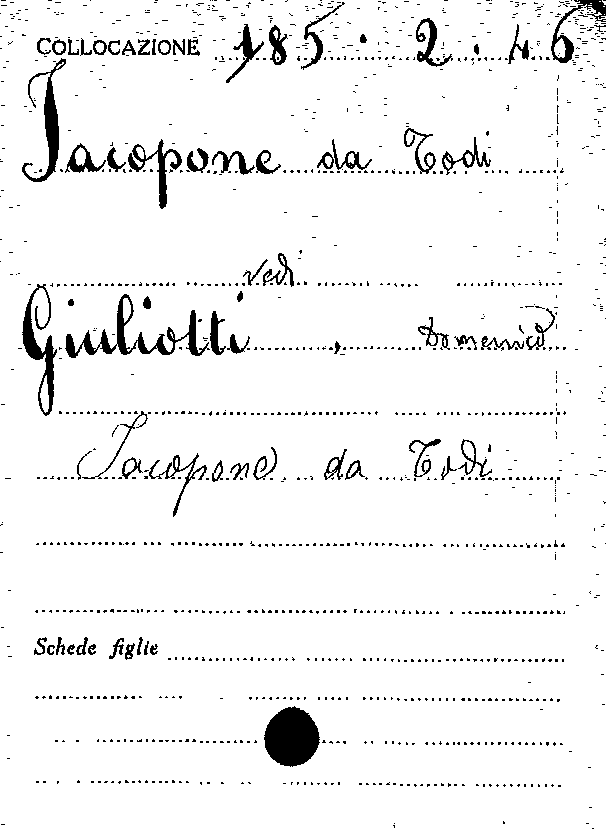 COLLOCAZIONE 185.2.46
Jacopone da Todi
vedi
Giuliotti, Domenico
Jacopone da Todi
Schede figlie